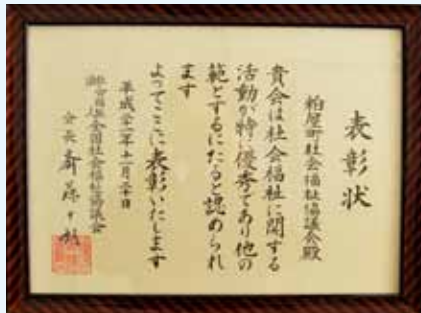 表彰状
粕屋町社会福祉協議会殿
貴会は社会福祉に関する
活動が特に優秀であり他の
範とするにたると認められ
ます
よってここに表彰いたします
平成二十一年十一月二十日
社会福祉法人全国社会福祉協議会
会長 斎藤十朗